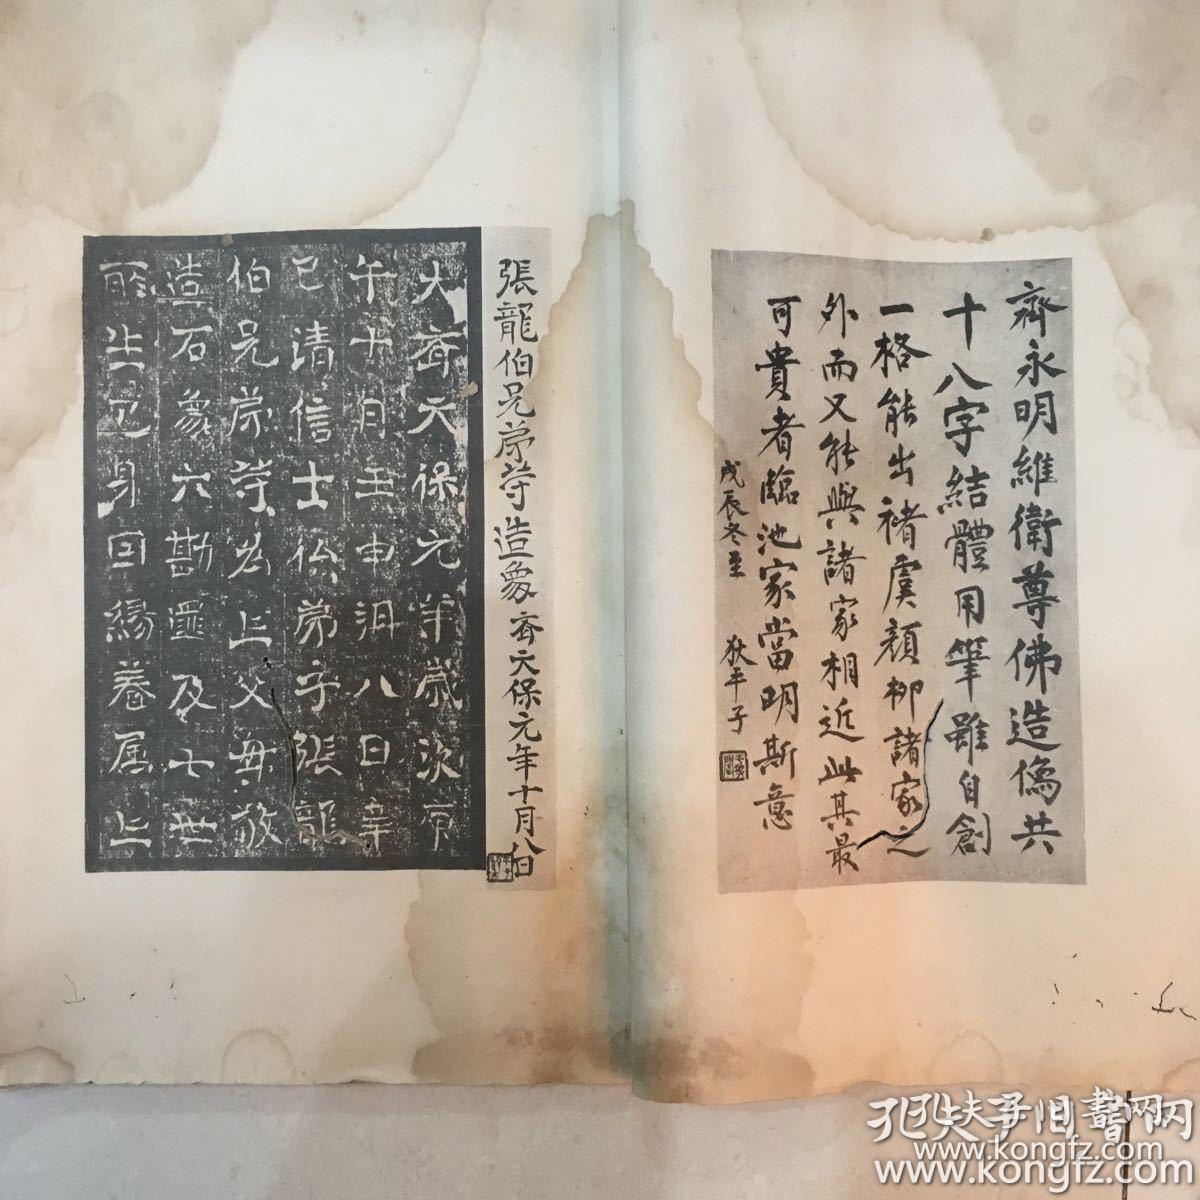 齊永明維衛尊佛造像共
十八字結體用筆雖自創
一格能出褚虞顏柳諸家之
外而又能與諸家相近此其最
可貴者臨池家當明斯意
戊辰冬至 狄平子
張龍伯兄弟等造象 齊天保元年十月八日
大齊天保元年歲次庚
午十月壬申朔八日辛
巳清信士仏弟子張龍
伯兄弟等為亡父母敬
造石象六勘匪及七世
所生己身回緣眷属上
孔夫子旧书网
www.kongfz.com